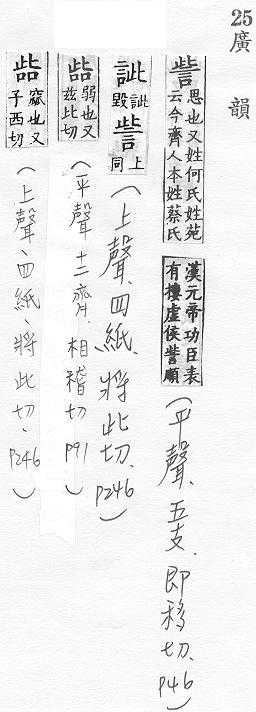 25廣韻
訾思也又姓何氏姓苑云今齊人本姓蔡氏
漢元帝功臣表有樓虛侯訾順
（平聲、五支、即移切、P46）
訿訿毀訾上同
（上聲、四紙、將此切、P246）
㗗弱也又兹此切
（平聲十二齊、相稽切P91）
㗗窳也又子西切
（上聲、四紙、將此切、P246）